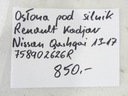 Osłona pod silnik
Renault Kadjar
Nissan Qashqai 13-17
758902626R
850,-